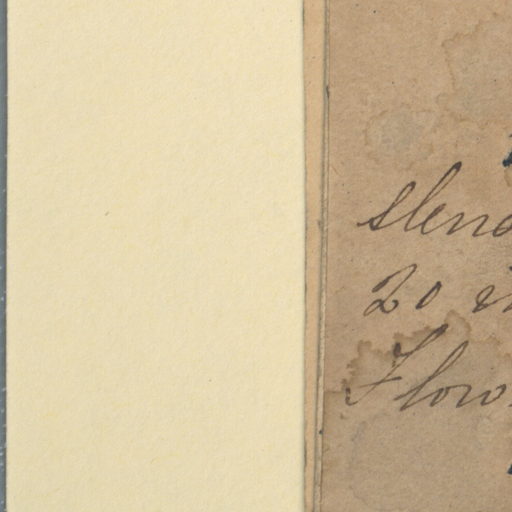 slend
20 i
Flow